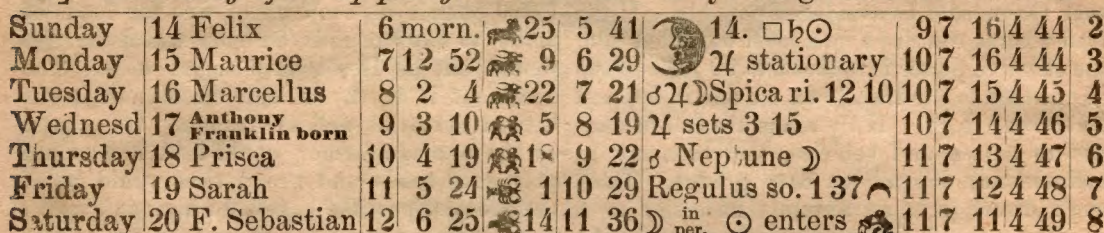 Sunday 14 Felix 6 morn. 25 5 41 14. □♄☉ 9 7 16 4 44 2
Monday 15 Maurice 7 12 52 9 6 29 ♃ stationary 10 7 16 4 44 3
Tuesday 16 Marcellus 8 2 4 22 7 21 ☌♃☽Spica ri. 12 10 10 7 15 4 45 4
Wednesd 17 Anthony Franklin born 9 3 10 5 8 19 ♃ sets 3 15 10 7 14 4 46 5
Thursday 18 Prisca 10 4 19 9 22 ☌ Neptune ☽ 11 7 13 4 47 6
Friday 19 Sarah 11 5 24 1 10 29 Regulus so. 1 37 11 7 12 4 48 7
Saturday 20 F. Sebastian 12 6 25 14 11 36 ☽ in per. ☉ enters 11 7 11 4 49 8